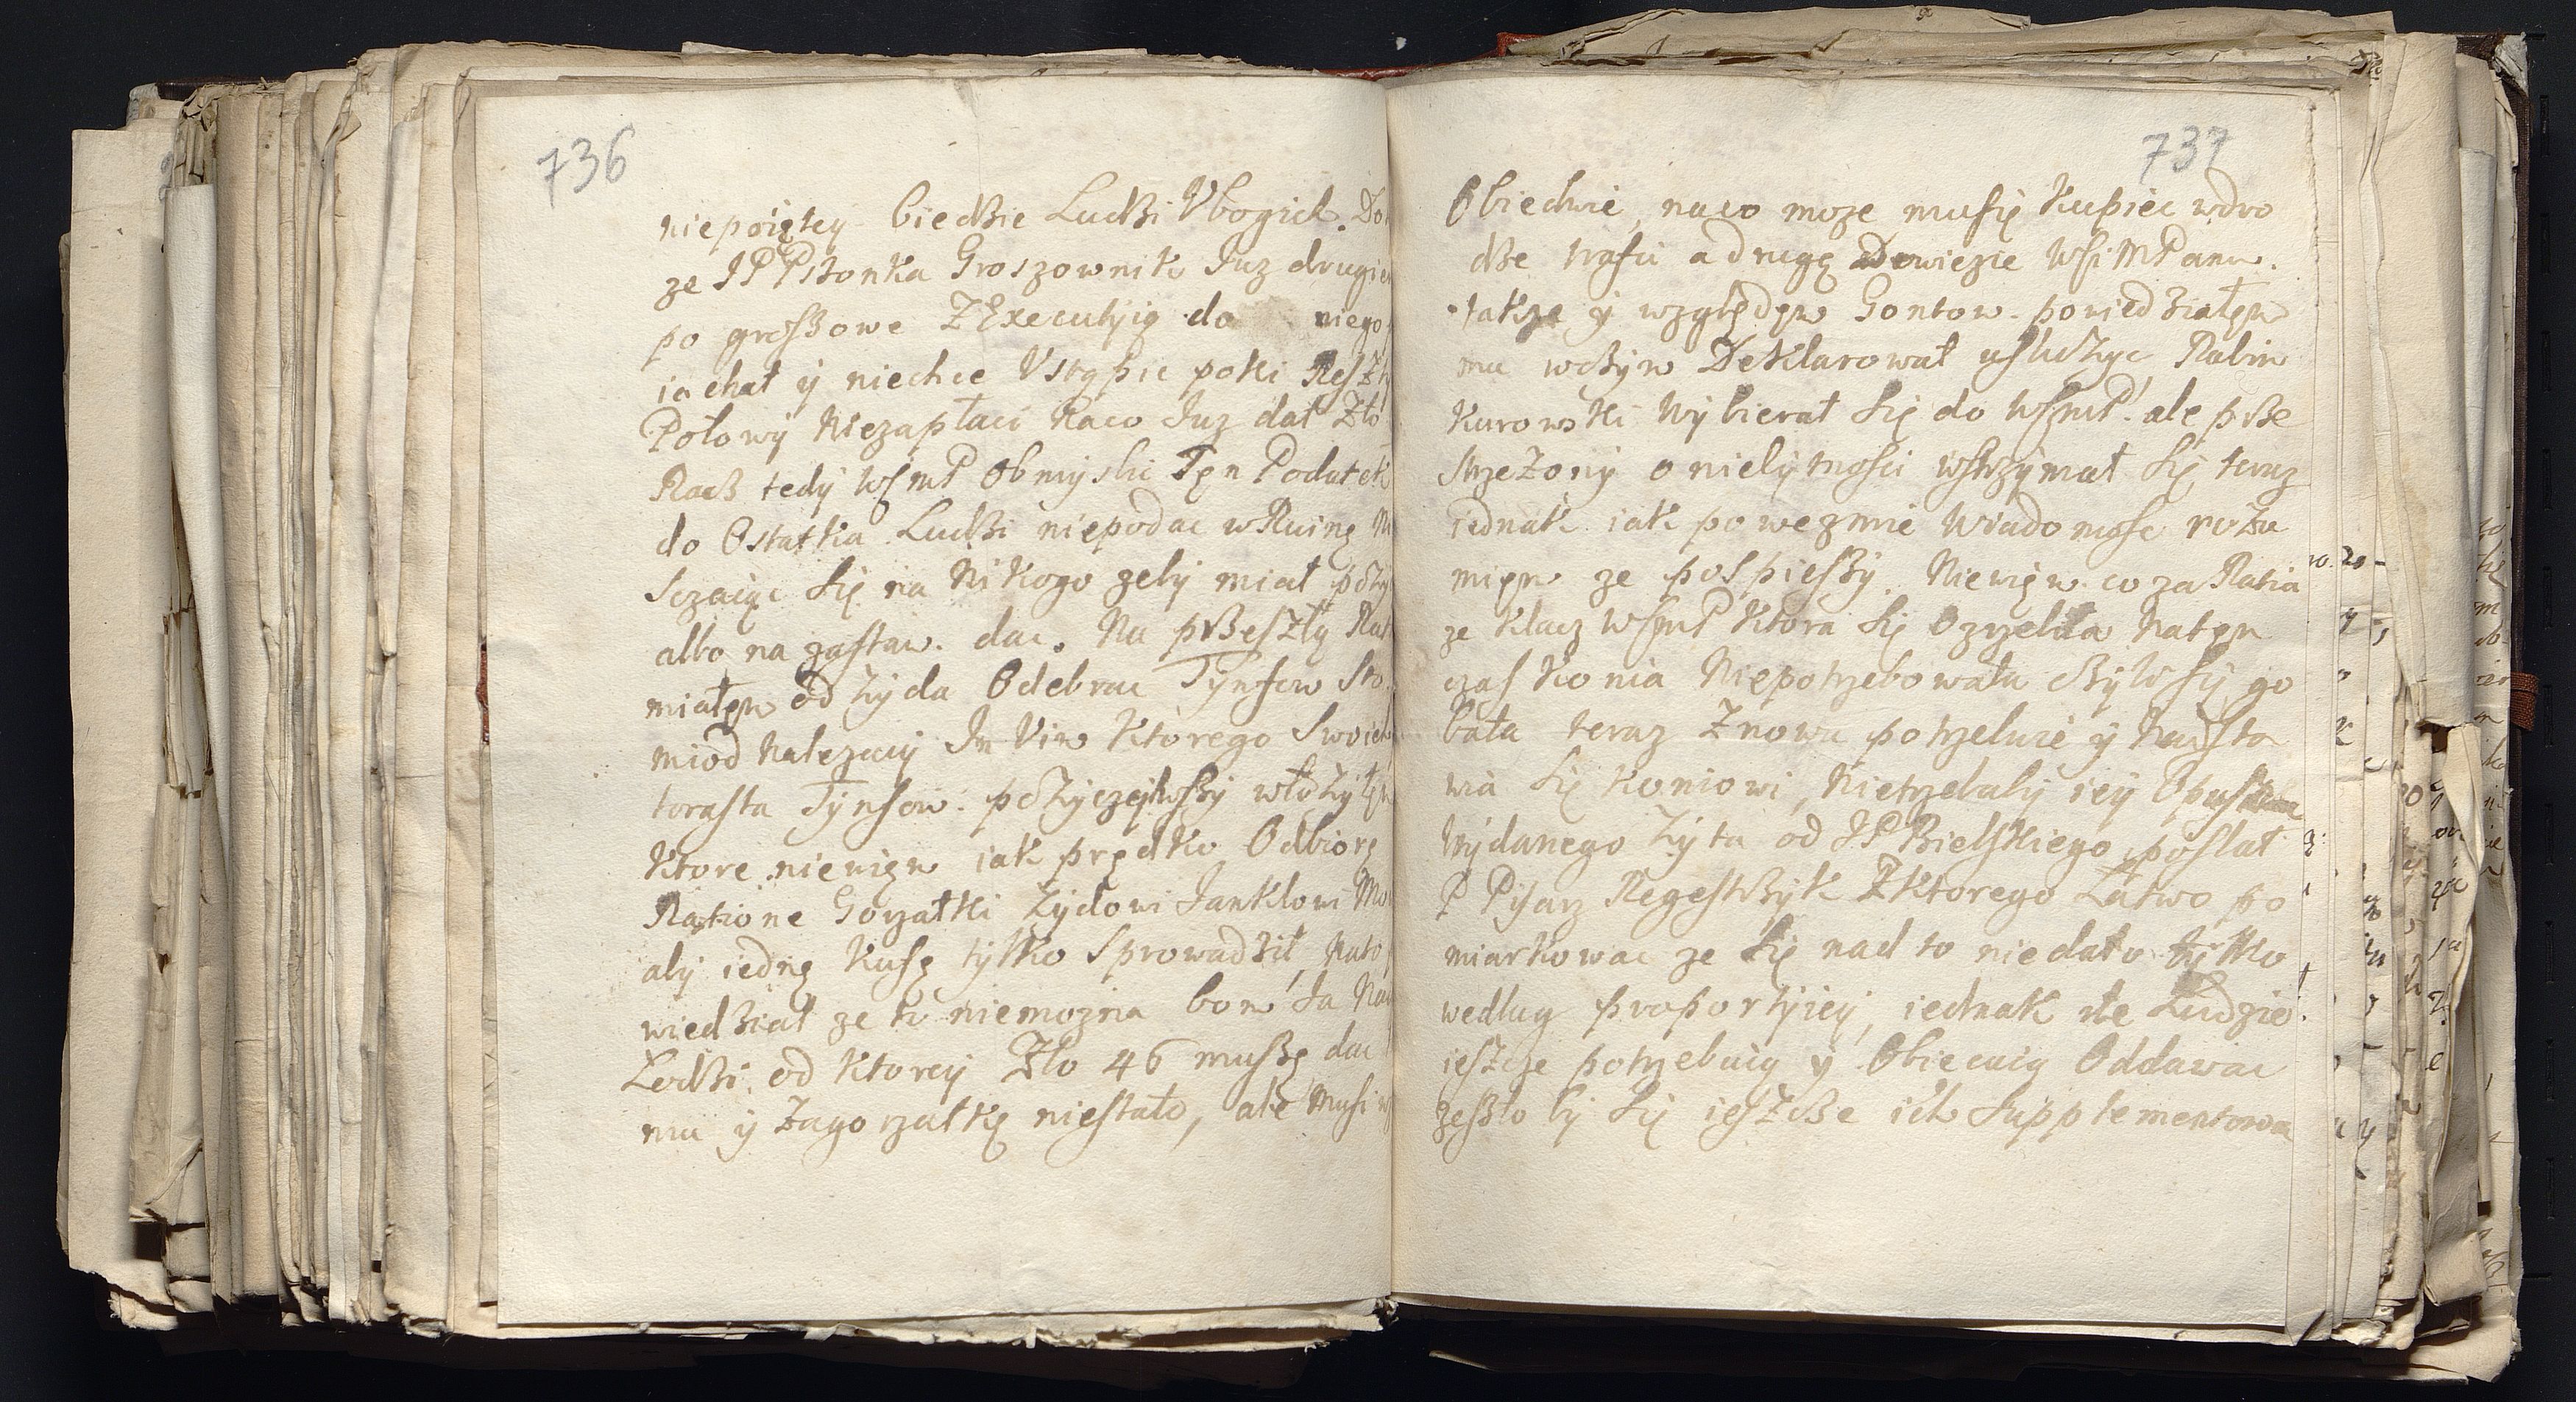 736
niepoiętey biedzie Ludzi Vbogich. Do
ze JPPstonka Groszownik Juz drugi
po groszowe ZExecutyią do niego
iachał y niechce Vstąpic poki Resz
Połowy Niezapłaci Naco Juz dał Zło
Racz tedy WsmP Obmyslic Ten Podatek
do Ostatka Ludzi niepodac w Ruinę
sczaiąc się na Nikogo zeby miał pozy
albo na zastaw. dac. Na przeszłą Rat
miałem od Zyda Odebrac Tynfow Sto
miod Nalezący In Vim Ktorego Swoich
torasta Tynfow. pozyczeiwszy włozyłem
Ktore niewiem iak prędko Odbiorę
Ratione Gorzałki Zydowi Janklowi
aby iedną Kufę tylko Sprowadził, Nato
wiedział ze to niemozna bom Ja
Łodzi od Ktorey Zło 46 muszę dac
mu y Zagorzałkę niestało, ale Musi
737
Obiedwie, naco moze mufię Kupiec wdro
dze trafic a drugą dowiezie WsiMPanu.
Takze y względem Gontow. powiedziałem
mu wczym Deklarował usluzyc, Rabin
Kurowski Wybierał się do WsmP. ale prze
strzezony o niebytnosci wstrzymał się teraz
iednak iak powezmie Wiadomosc rozu
miem ze pospieszy. Niewiem co za Ratia
ze Klacz WsmP Ktora się Ozrzebiła Naten
czas Konia Niepotrzebowała
bała teraz Znowu potrzebuie y Nadsta
wia się Koniowi, Nietrzebaby iey
Wydanego Zyta od JP Bielskiego posłał
P Pisarz Regestrzyk Zktorego Łatwo po
miarkowac ze się nad to niedało tylko
według proportyiey, iednak ze Ludzie
ieszcze potrzebuią y Obiecuią Oddawac
zeszło by się ieszcze ich Supplementowa